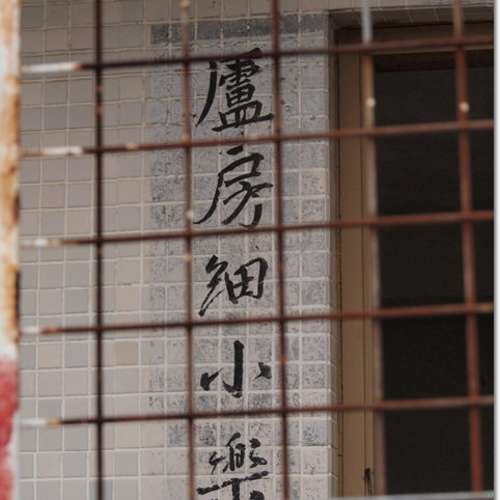 廬房細小樂